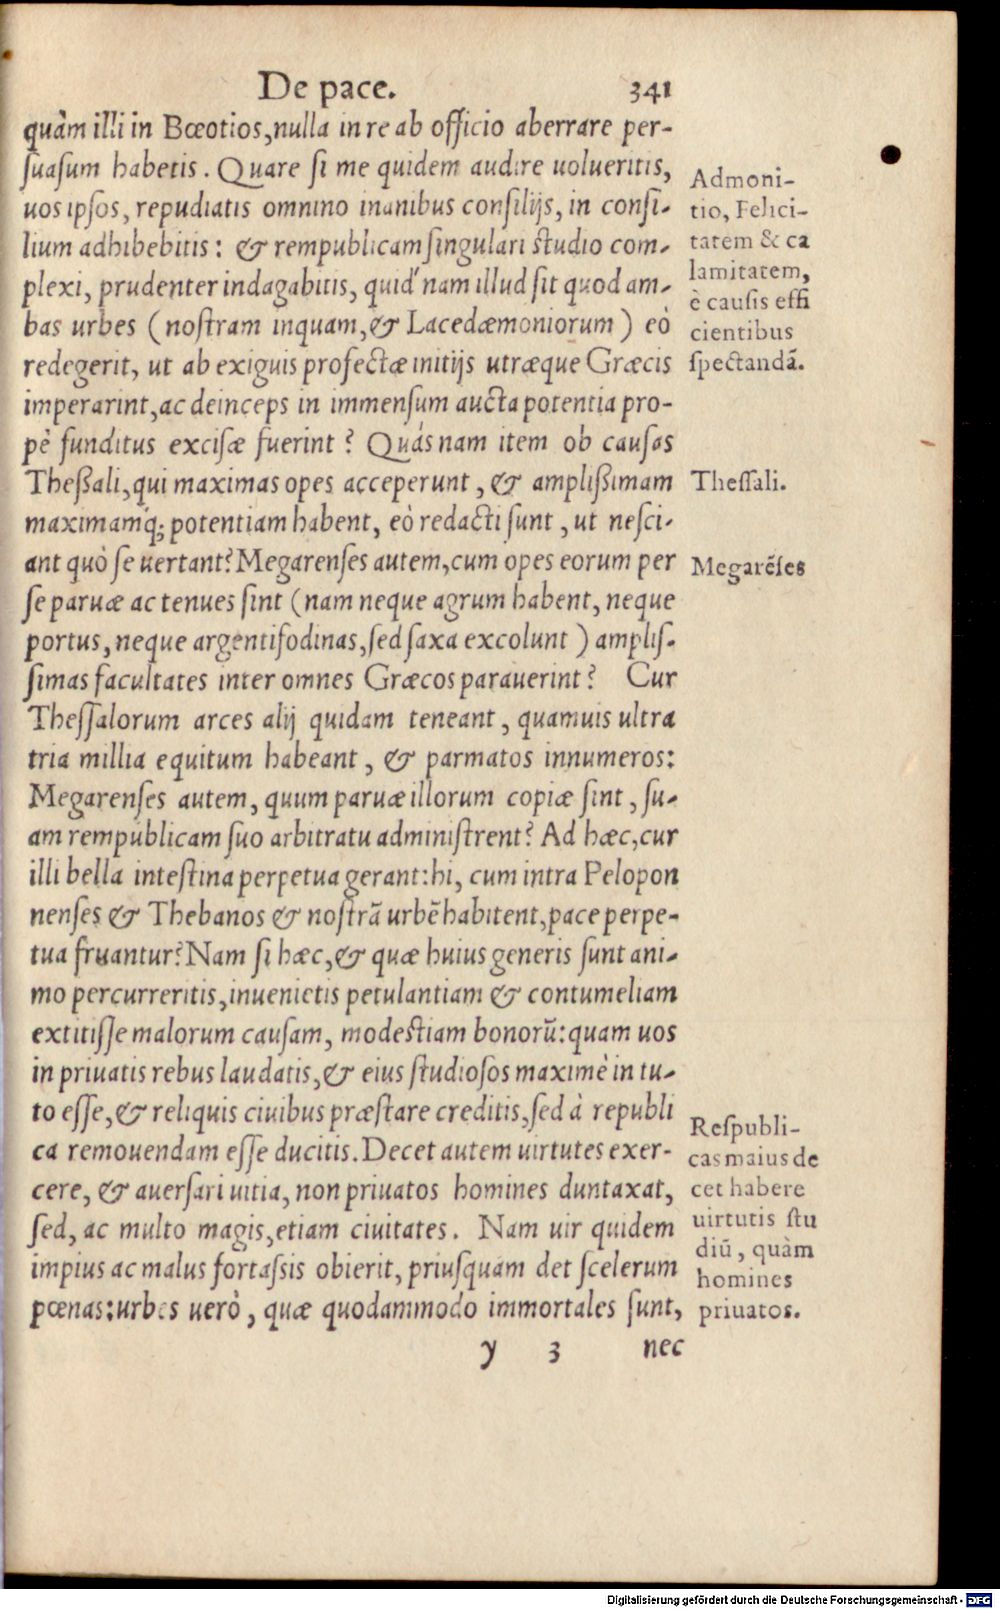 De pace. 341
quàm illi in Bœotios, nulla in re ab officio aberrare per-
suasum habetis. Quare si me quidem audire uolueritis,
uos ipsos, repudiatis omnino inanibus consilijs, in consi-
lium adhibebitis: & rempublicam singulari studio com-
plexi, prudenter indagabitis, quid´nam illud sit quod am-
bas urbes (nostram inquam, & Lacedæmoniorum) eò
redegerit, ut ab exiguis profectæ initijs utræque Græcis
imperarint, ac deinceps in immensum aucta potentia pro-
pè funditus excisæ fuerint? Quásnam item ob causas
Theßali, qui maximas opes acceperunt, & amplißimam
maximamq́; potentiam habent, eò redacti sunt, ut nesci-
ant quò se uertant? Megarenses autem, cum opes eorum per
se paruæ ac tenues sint (nam neque agrum habent, neque
portus, neque argentifodinas, sed saxa excolunt) amplis-
simas facultates inter omnes Græcos parauerint? Cur
Thessalorum arces alij quidam teneant, quamuis ultra
tria millia equitum habeant, & parmatos innumeros:
Megarenses autem, quum paruæ illorum copiæ sint, su-
am rempublicam suo arbitratu administrent? Ad hæc, cur
illi bella intestina perpetua gerant: hi, cum intra Pelopon
nenses & Thebanos & nostrã urbẽ habitent, pace perpe-
tua fruantur? Nam si hæc, & quæ huius generis sunt ani-
mo percurreritis, inuenietis petulantiam & contumeliam
extitisse malorum causam, modestiam bonorũ: quam uos
in priuatis rebus laudatis, & eius studiosos maximè in tu-
to esse, & reliquis ciuibus præstare creditis, sed à republi
ca remouendam esse ducitis. Decet autem uirtutes exer-
cere, & auersari uitia, non priuatos homines duntaxat,
sed, ac multo magis, etiam ciuitates. Nam uir quidem
impius ac malus fortassis obierit, priusquam det scelerum
pœnas: urbes uerò, quæ quodammodo immortales sunt,
y 3 nec
Admoni-
tio, Felici-
tatem & ca
lamitatem,
è causis effi
cientibus
spectandã.
Thessali.
Megarẽses
Respubli-
cas maius de
cet habere
uirtutis stu
diũ, quàm
homines
priuatos.
Digitalisierung gefördert durch die Deutsche Forschungsgemeinschaft - DFG